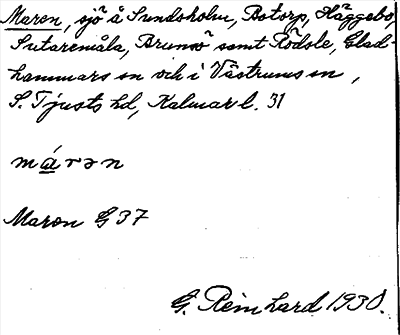 Maren, sjö å Sundsholm, Botorp, Häggebo,
Sutaremåla, Brumsö samt Rödsle, Glad-
hammars sn och i Västrums sn,
S. Tjusts hd, Kalmar l. 31
máron
Maron G 37
G. Reinhard 1930.